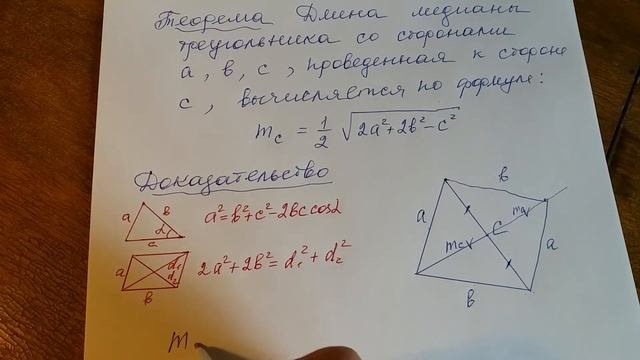 Теорема Длина медианы
треугольника со сторонами
a, b, c, проведенная к стороне
c, вычисляется по формуле:
m_c = 1/2 √(2a²+2b²-c²)
Доказательство
a b α c a²=b²+c²-2bc cosα
a d₁ d₂ b 2a²+2b²=d₁²+d₂²
b
a m_c c m_c a
b
m